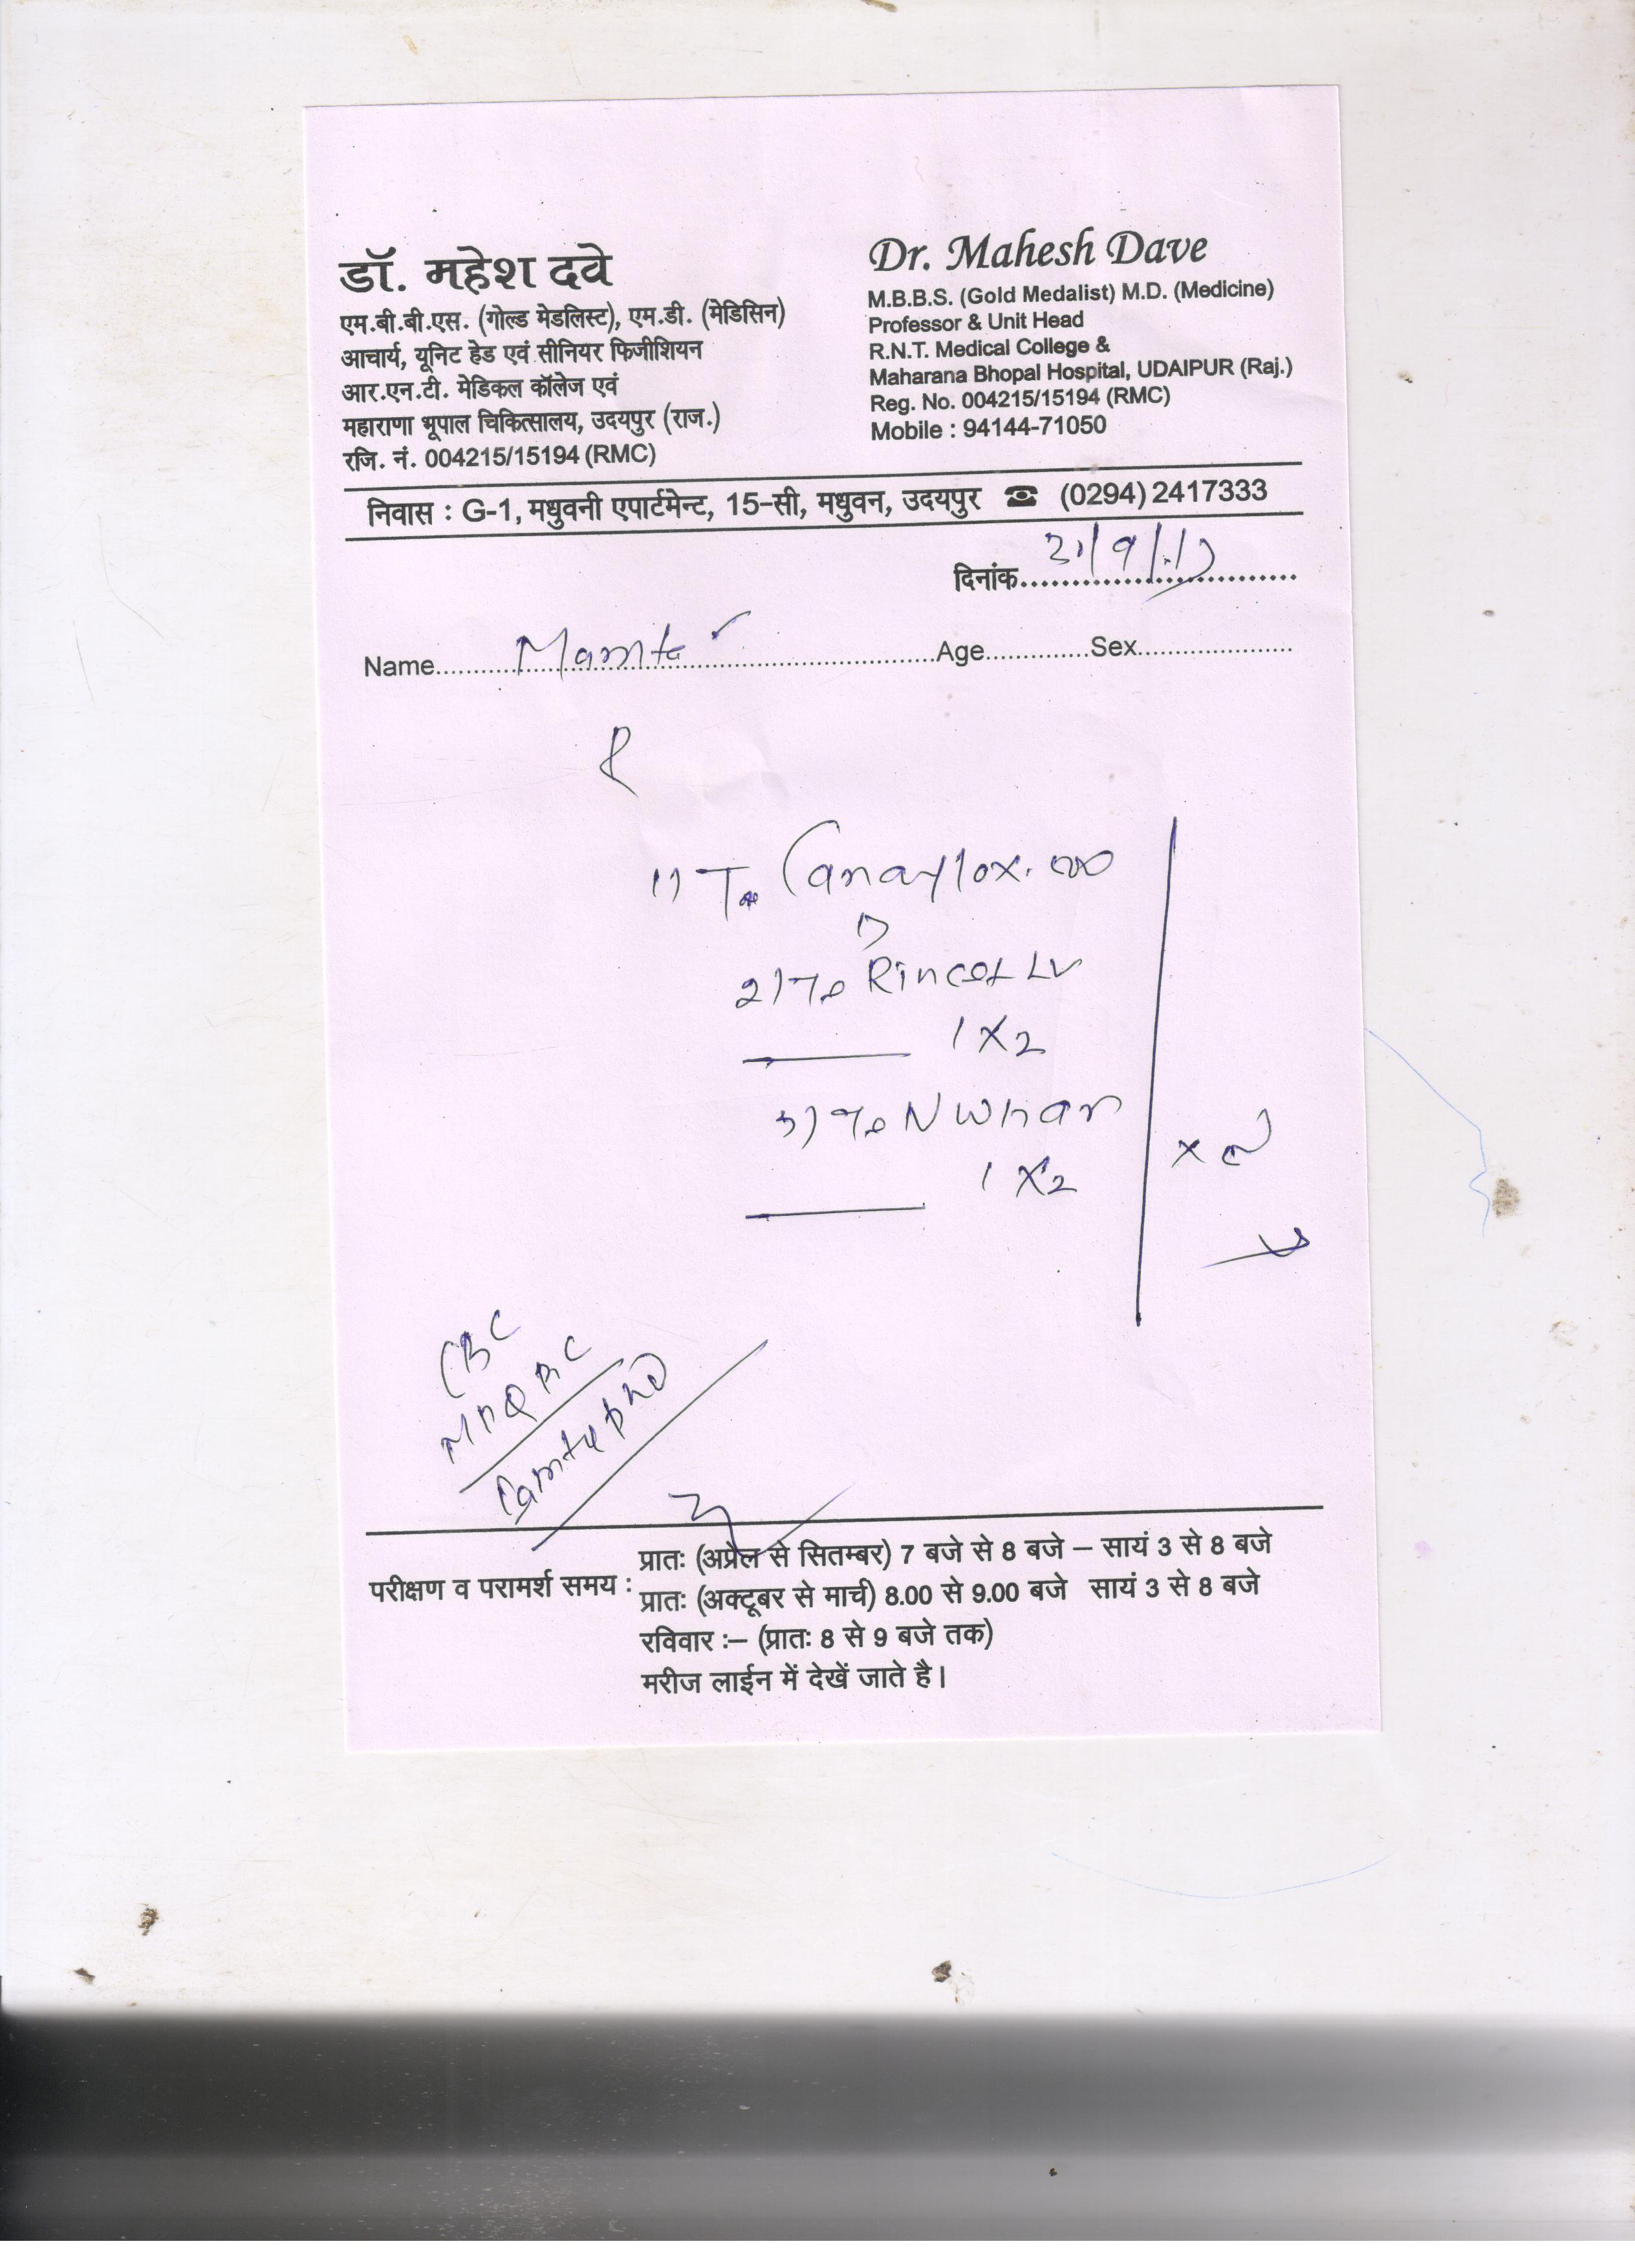 डॉ. महेश दवे
एम.बी.बी.एस. (गोल्ड मेडलिस्ट), एम.डी. (मेडिसिन)
आचार्य, यूनिट हेड एवं सीनियर फिजीशियन
आर.एन.टी. मेडिकल कॉलेज एवं
महाराणा भूपाल चिकित्सालय, उदयपुर (राज.)
रजि. नं. 004215/15194 (RMC)
Dr. Mahesh Dave
M.B.B.S. (Gold Medalist) M.D. (Medicine)
Professor & Unit Head
R.N.T. Medical College &
Maharana Bhopal Hospital, UDAIPUR (Raj.)
Reg. No. 004215/15194 (RMC)
Mobile : 94144-71050
निवास : G-1, मधुवनी एपार्टमेन्ट, 15-सी, मधुवन, उदयपुर ☎ (0294) 2417333
दिनांक
Name Mamta Age Sex
1) T.
2) T. Rincost LV
1 X 2
3)
1 X 2
CBC
परीक्षण व परामर्श समय : प्रातः (अप्रेल से सितम्बर) 7 बजे से 8 बजे – सायं 3 से 8 बजे
प्रातः (अक्टूबर से मार्च) 8.00 से 9.00 बजे सायं 3 से 8 बजे
रविवार :– (प्रातः 8 से 9 बजे तक)
मरीज लाईन में देखें जाते है।